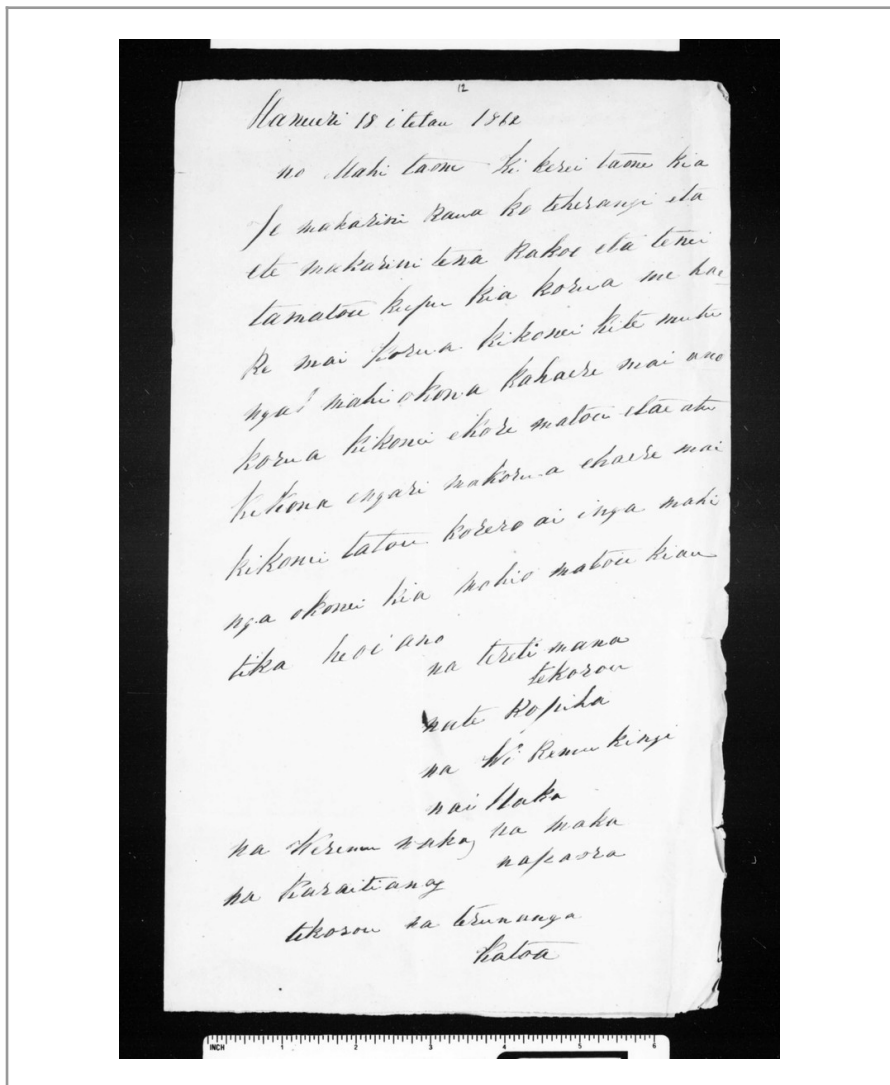 12
Hanueri 18 i tetau 1862
no Mahi taone ki kerei taone kia
te makarini Rawa ko teherangi eta
ete makarini tena kakoe eta tenei
tamatou kupu kia korua me hae
re mai korua kikonei kite mutu
nga i mahi okorua kahaere mai ano
korua kikonei ekore matou etae atu
kikona engari makorua ehaere mai
kikonei tatou korero ai inga mahi
nga okonei kia mohio matou kiau
tika heoi ano
na tereti mana
tekorou
nate Kopiha
na Wi Kinu kingi
nai
na Wiremu na maka
na Karaitiana napaora
tekorou na terunanga
katoa
INCH 1 2 3 4 5 6